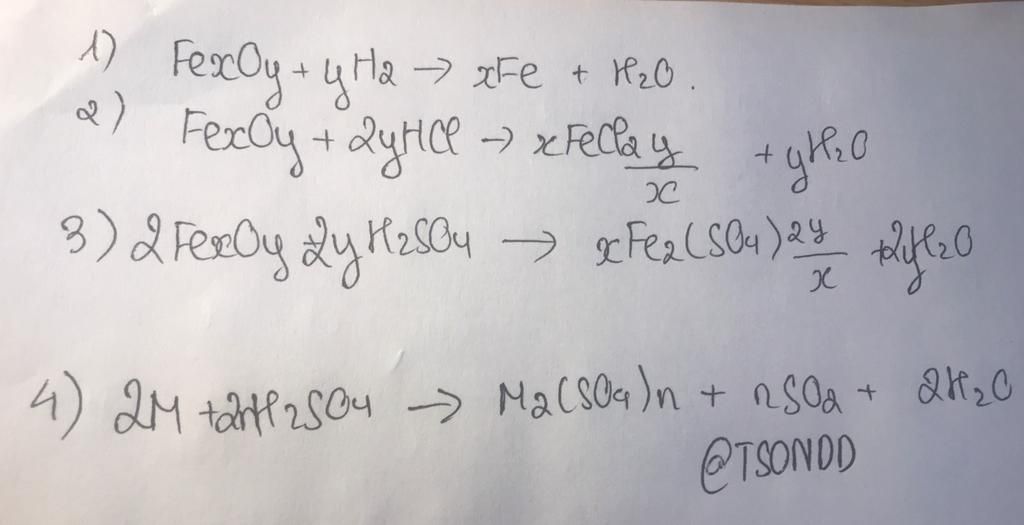 1) FexOy + yH2 → xFe + H2O.
2) FexOy + 2yHCl → xFeCl2y/x + yH2O
3) 2FexOy + 2yH2SO4 → xFe2(SO4)2y/x + 2yH2O
4) 2M + 2nH2SO4 → M2(SO4)n + nSO2 + 2H2O
@TSONDD